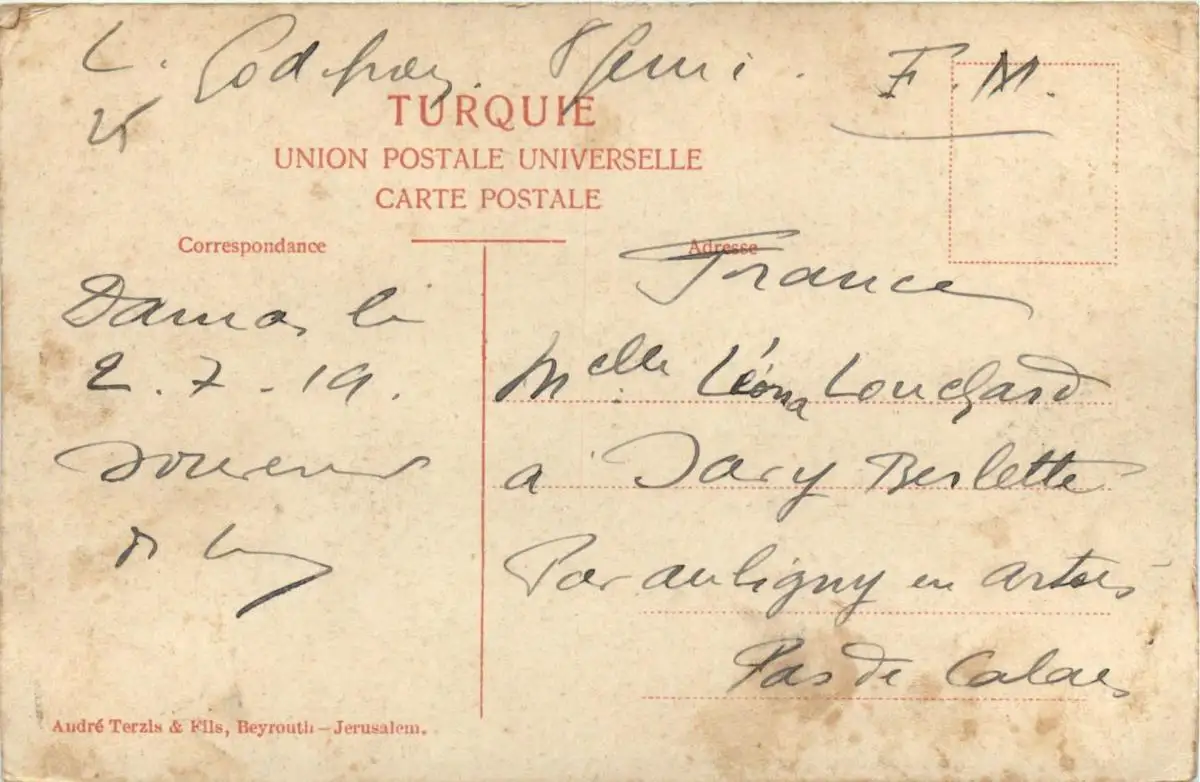 L. Godfroy. Henri. F.M.
25
TURQUIE
UNION POSTALE UNIVERSELLE
CARTE POSTALE
Correspondance
Damas le
2.7-19.
Souvenir
Adresse
France
Melle. Léona Louchard
a Savy Berlette
Par aubigny en artois
Pas de Calais
André Terzis & Fils, Beyrouth – Jerusalem.